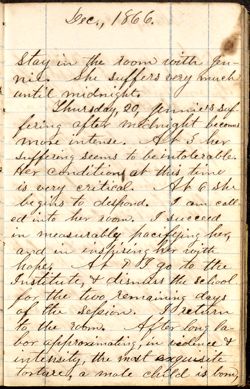 Dec., 1866.
stay in the room with Jen-
nie. She suffers very much
until midnight.
Thursday, 20, Jennie's suf-
fering after midnight becomes
more intense. At 3 her
suffering seems to be intolerable.
Her condition at this time
is very critical. At 6 she
begins to despond. I am call-
ed into her room. I succeed
in measurably pacifying her,
and in inspiring her with
hope. At 9 I go to the
Institute, & dismiss the school
for the two remaining days
of the session. I return
to the room. After long la-
bor approximating, in violence &
intensity, the most exquisite
torture, a male child is born,